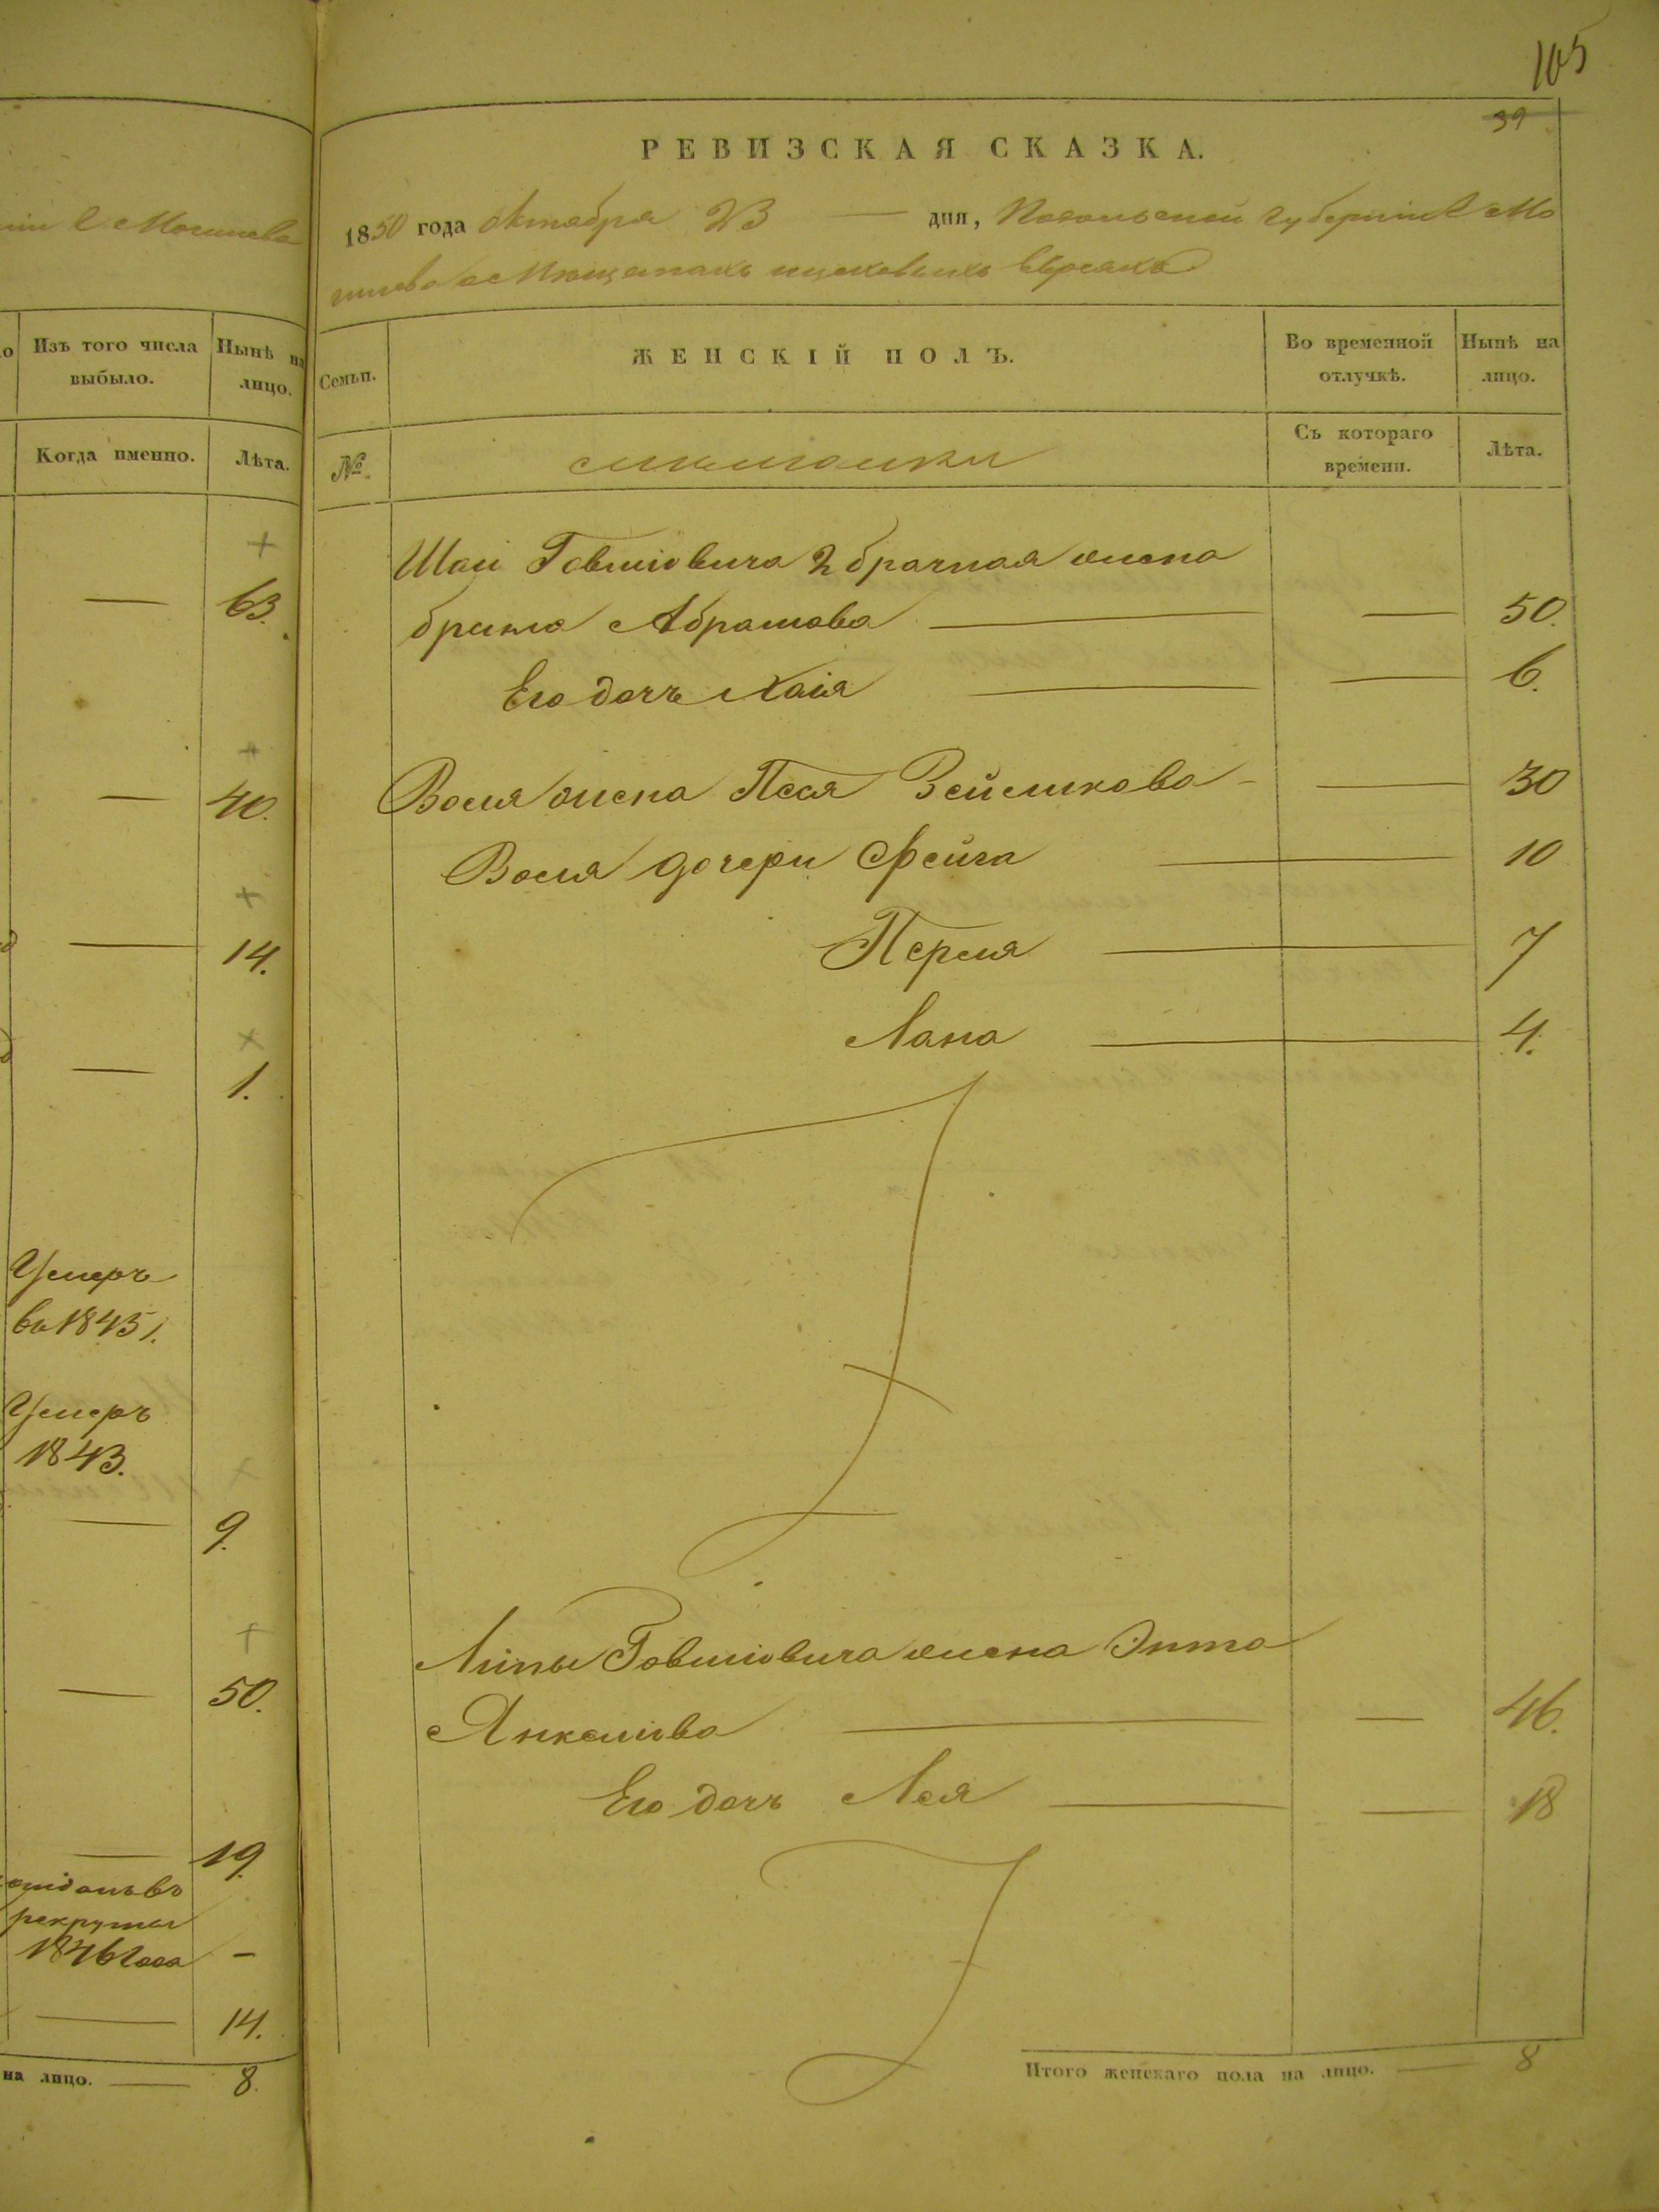 105
39
РЕВИЗСКАЯ СКАЗКА.
1850 года Октября 23 дня, Подольской губернии г Мо
гилева о Мещанахъ евреяхъ
Семьи.
ЖЕНСКІЙ ПОЛЪ.
Во временной отлучкѣ.
Нынѣ на лицо.
№.
Съ котораго времени.
Лѣта.
Шаи Говшіовича 2 брачная жена
брима Абрамова 50.
Его дочъ Хаія 6.
Вселя жена Песя Зейликова 30
Вселя дочери Фейга 10
Перля 7
Лана 4.
Липы Говшіовича жена Энта
Янкеліова 46.
Его дочъ Лея 18
Итого женскаго пола на лицо. 8
г Могилева
Изъ того числа выбыло.
Нынѣ на лицо.
Когда именно.
Лѣта.
63.
40.
14.
1.
Умеръ
въ 1845 г.
Умеръ
1843.
9.
50.
19.
отданъ въ
рекруты
1846 года –
14.
на лицо. 8.